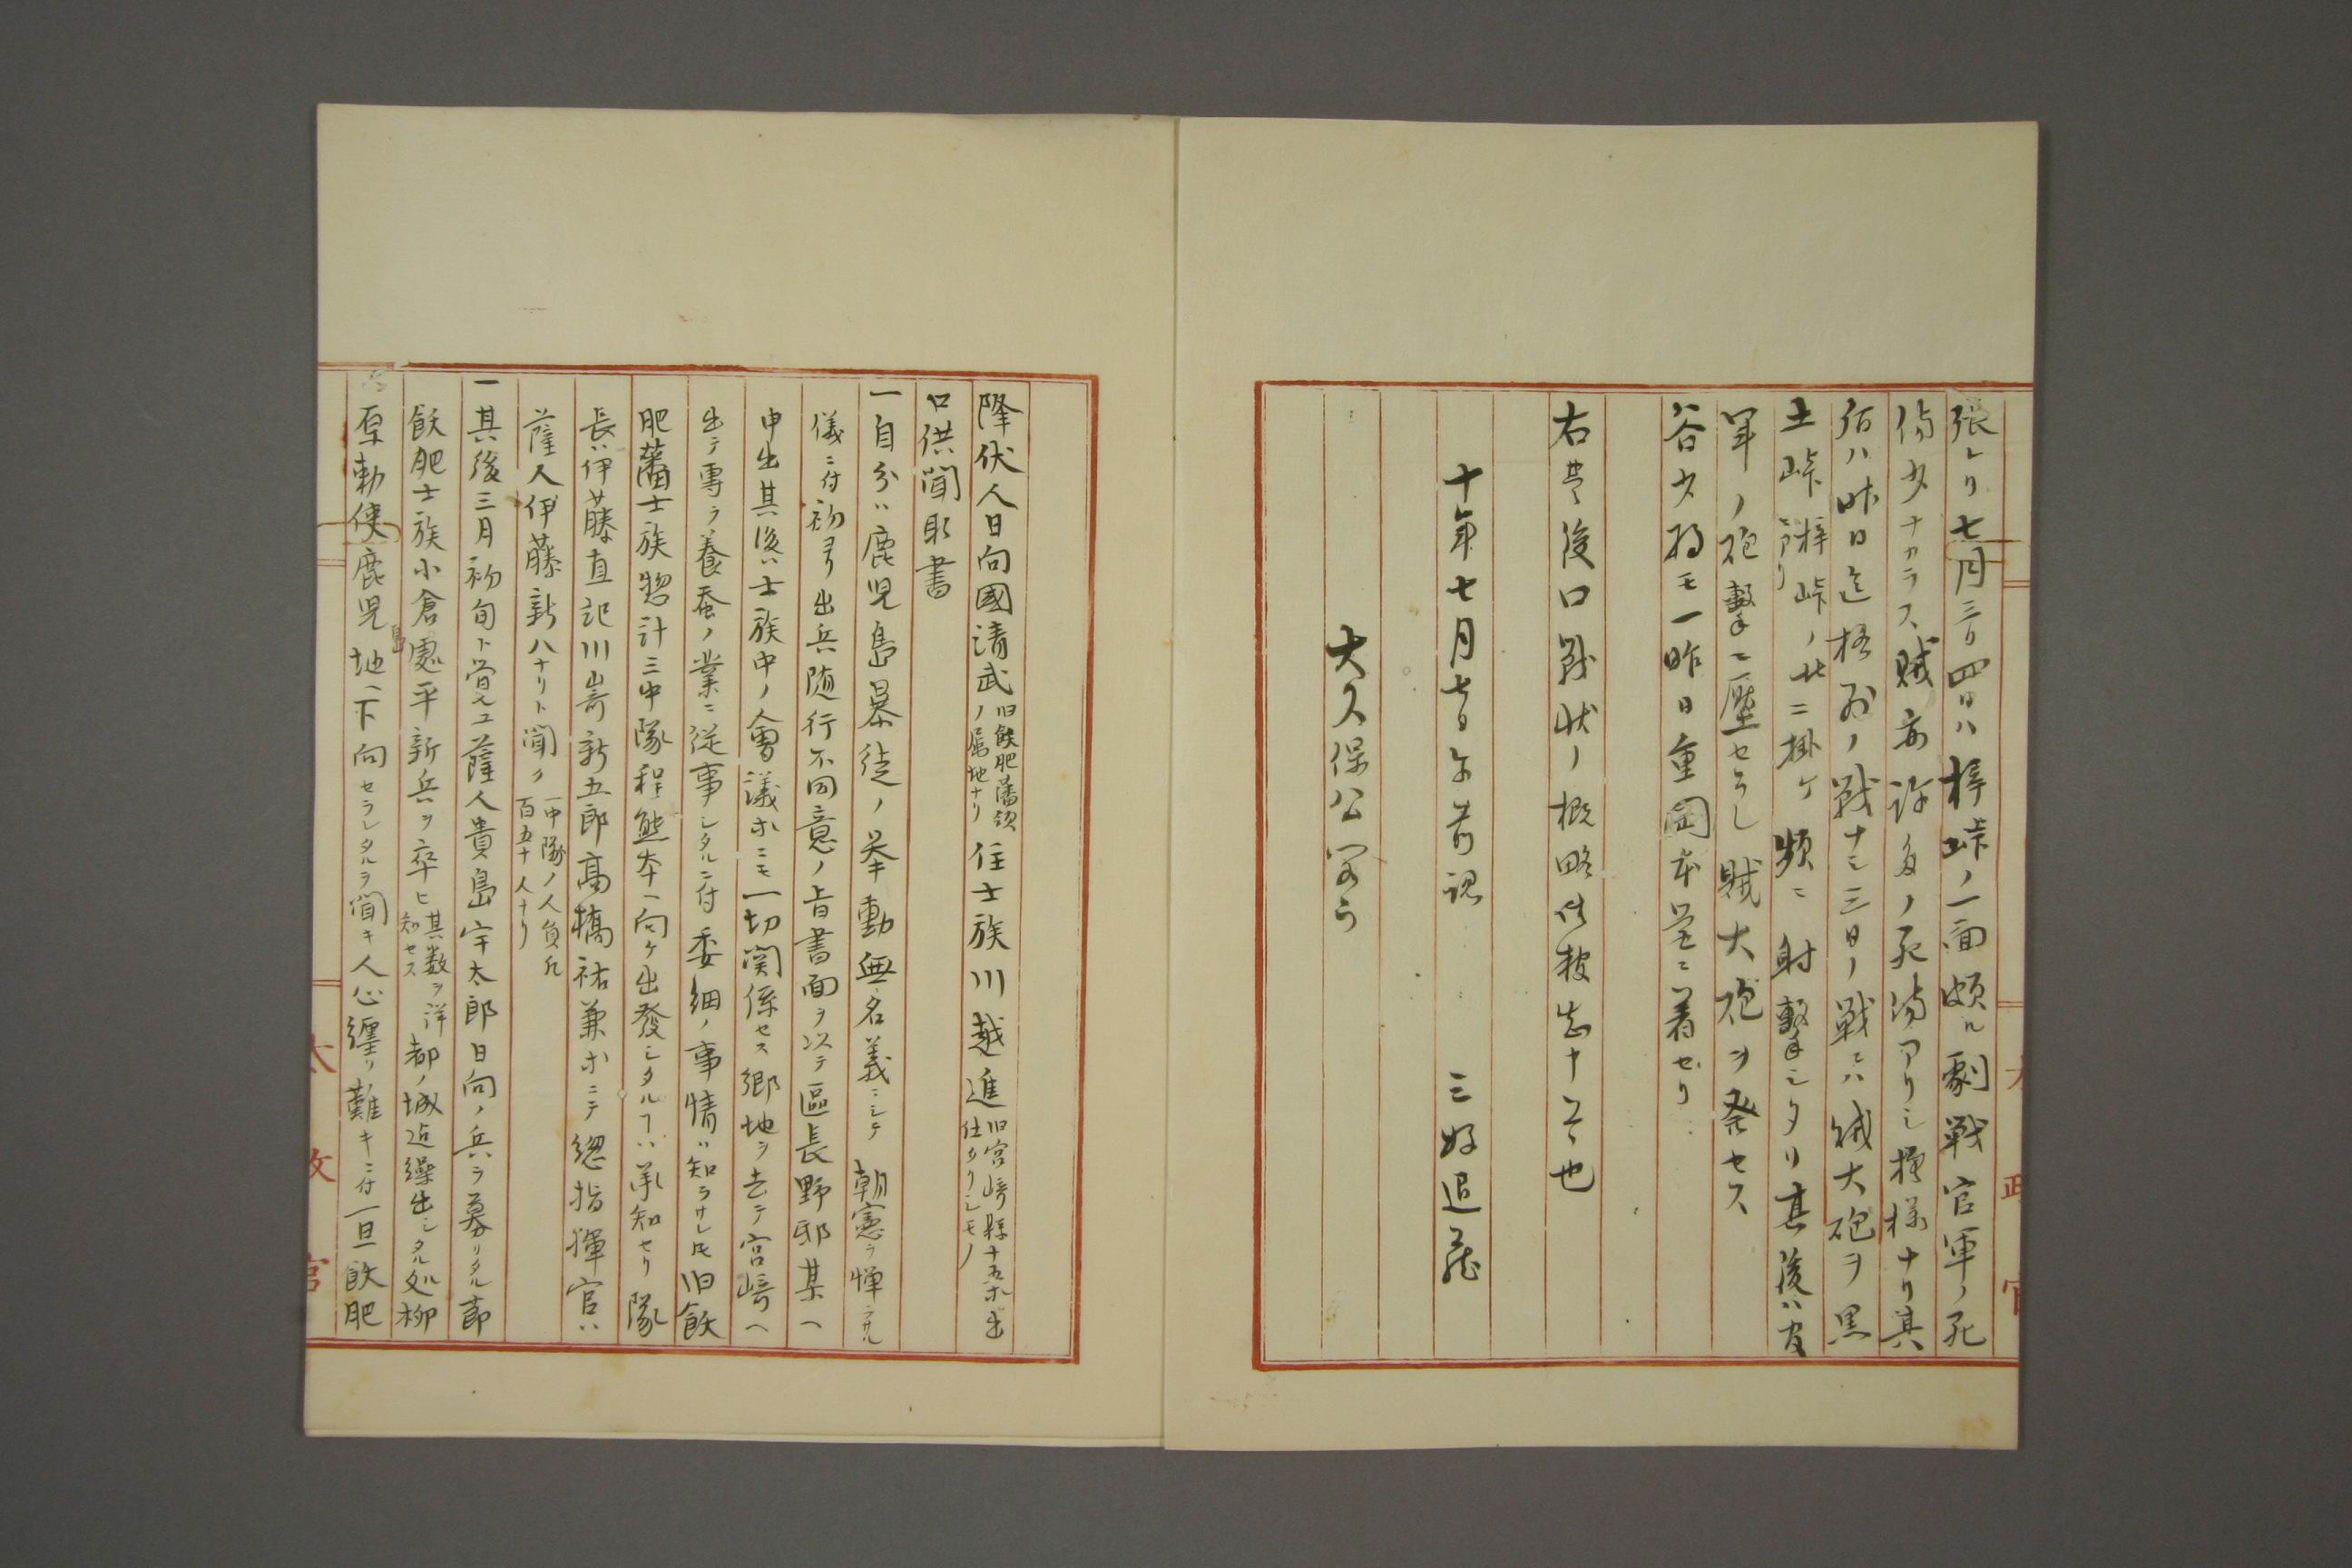 張レリ七月三日四日ハ梓峠ノ一面頗ル劇戦官軍ノ死
傷少ナカラス賊亦許多ノ死傷アリシ模様ナリ其
ハ昨日迄ノ戦十三日ノ戦ニハ賊大砲ヲ黒
土峠ヨリ梓峠ノ北ニ掛ケ頻ニ射撃シタリ其後ハ官
軍ノ砲撃ニ壓セラレ賊大砲ヲ発セス
谷少将モ一昨日重岡本営ニ着セリ
右豊後口戦状ノ概略供披志申候也
十年七月七日午前認 三好退蔵
大久保公閣下
太政官
降伏人日向國清武旧飫肥藩領ノ属地ナリ住士族川越進旧宮崎縣十五等出仕タリシモノ
口供聞取書
一自分ハ鹿児島暴徒ノ挙動無名義ニシテ朝憲ヲ憚ラサル
儀ニ付初ヨリ出兵随行不同意ノ旨書面ヲ以テ區長野邨某ヘ
申出其後ハ士族中ノ會議ホニモ一切関係セス郷地ヲ去テ宮崎ヘ
出テ専ラ養蚕ノ業ニ従事シタルニ付委細ノ事情ハ知ラサレ𪜈旧飫
肥藩士族惣計三中隊程熊本ヘ向ケ出發シタルヿハ承知セリ隊
長ハ伊藤直記川嵜新五郎高橋祐兼ホニテ総指揮官ハ
薩人伊藤新八ナリト聞ク一中隊ノ人員凡百五十人ナリ
一其後三月初旬ト覚ユ薩人貴島宇太郎日向ノ兵ヲ募リタル節
飫肥士族小倉處平新兵ヲ卒ヒ其数ヲ詳知セス都ノ城迄繰出シタル処柳
原勅使鹿児島地ヘ下向セラレタルヲ聞キ人心纏リ難キニ付一旦飫肥
太政官